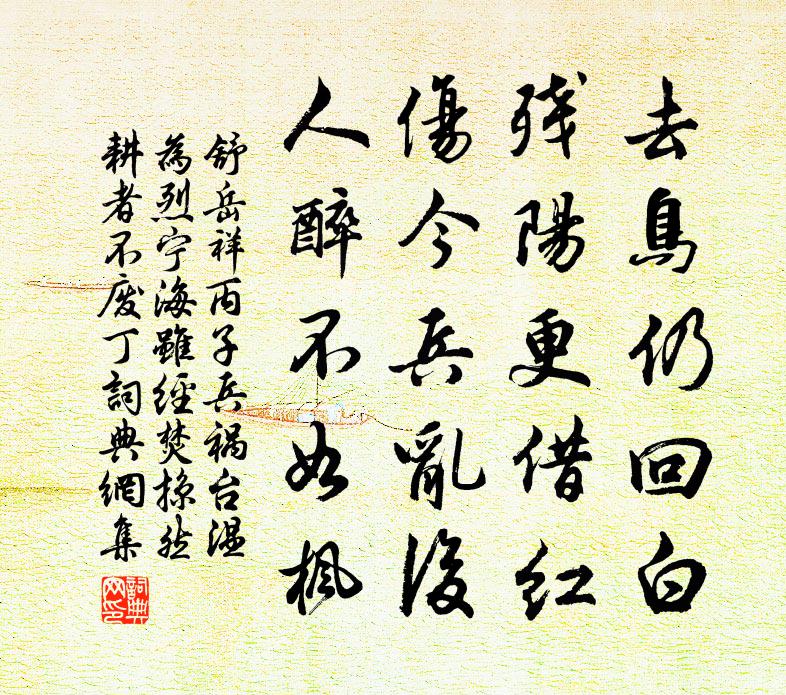 去鳥仍回白
残陽更借红
傷今兵亂後
人醉不如楓
舒岳祥丙子兵禍台温
為烈宁海雖經焚掠然
耕者不废丁詞典網集
詞典
网印